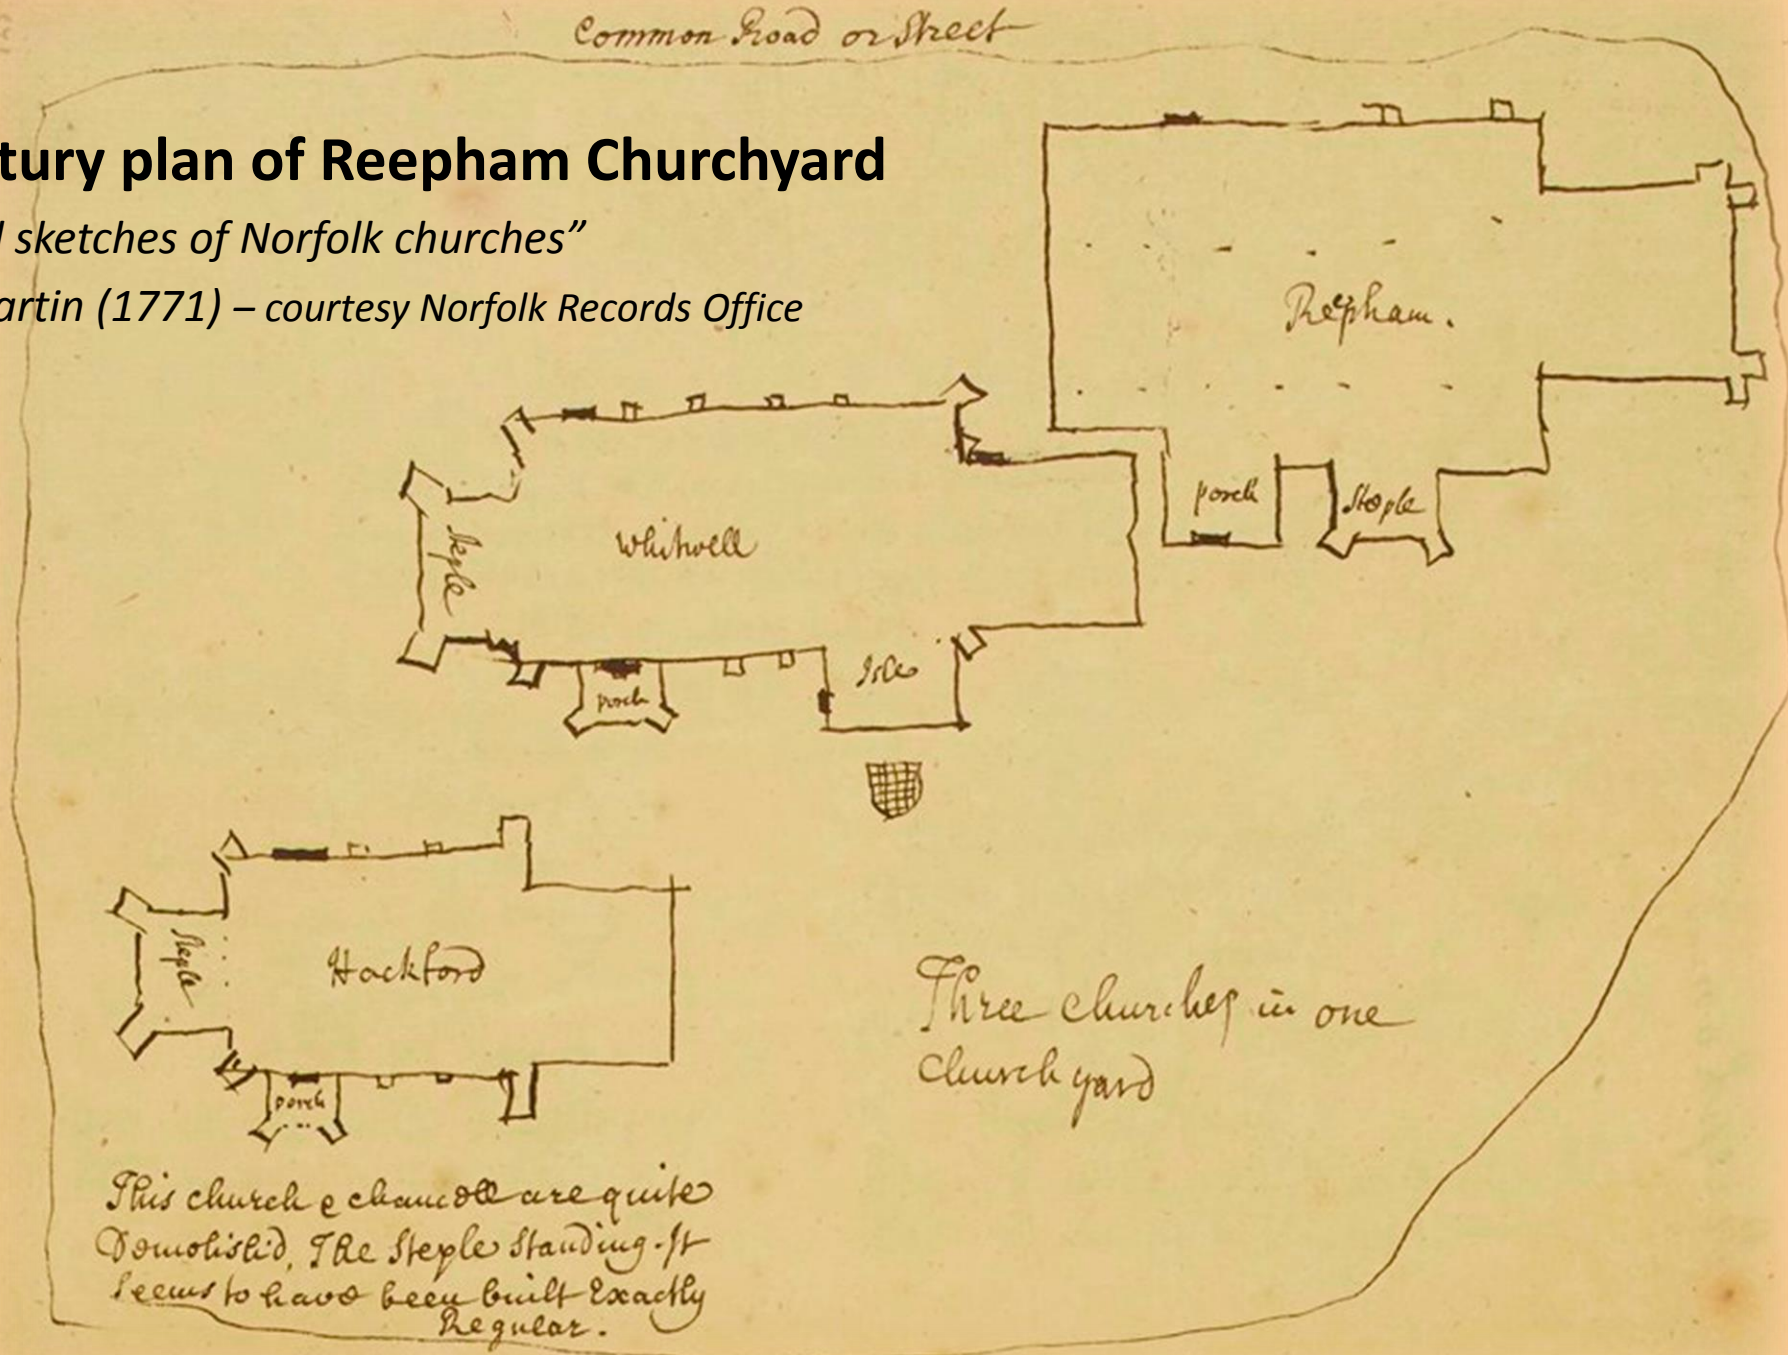 Common Road or Street
tury plan of Reepham Churchyard
l sketches of Norfolk churches”
artin (1771) – courtesy Norfolk Records Office
Reepham.
porch
Steple
Whitwell
Steple
Isle
porch
Hackford
Steple
porch
Three churches in one
Church yard
This church & chancell are quite
Demolish'd, The Steple Standing. It
Seems to have been built Exactly
Regular.